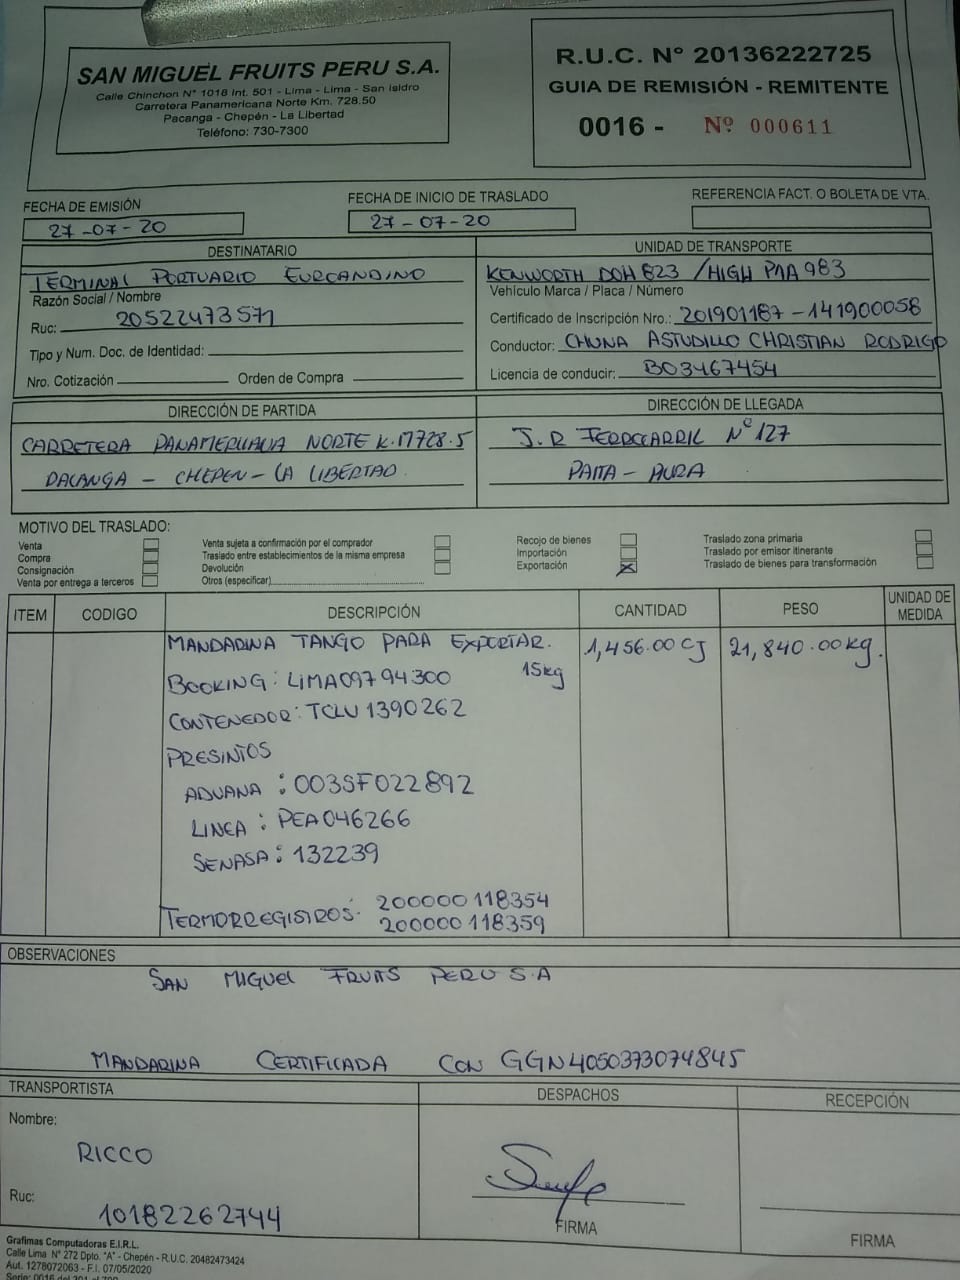 SAN MIGUEL FRUITS PERU S.A.
Calle Chinchon N° 1018 Int. 501 - Lima - Lima - San Isidro
Carretera Panamericana Norte Km. 728.50
Pacanga - Chepén - La Libertad
Teléfono: 730-7300
R.U.C. N° 20136222725
GUIA DE REMISIÓN - REMITENTE
0016 - Nº 000611
FECHA DE EMISIÓN
27-07-20
FECHA DE INICIO DE TRASLADO
27-07-20
REFERENCIA FACT. O BOLETA DE VTA.
DESTINATARIO
TERMINAL PORTUARIO EUROANDINO
Razón Social / Nombre
Ruc: 20522473571
Tipo y Num. Doc. de Identidad:
Nro. Cotización Orden de Compra
UNIDAD DE TRANSPORTE
KENWORTH DOH 823 / HIGH PAA 983
Vehículo Marca / Placa / Número
Certificado de Inscripción Nro.: 201901187-141900058
Conductor: CHUNA ASTUDILLO CHRISTIAN RODRIGO
Licencia de conducir: B03467454
DIRECCIÓN DE PARTIDA
CARRETERA PANAMERICANA NORTE K.M728.5
PACANGA - CHEPEN - LA LIBERTAD
DIRECCIÓN DE LLEGADA
J.R FERROCARRIL Nº 127
PAITA - PIURA
MOTIVO DEL TRASLADO:
Venta
Compra
Consignación
Venta por entrega a terceros
Venta sujeta a confirmación por el comprador
Traslado entre establecimientos de la misma empresa
Devolución
Otros (especificar)
Recojo de bienes
Importación
Exportación X
Traslado zona primaria
Traslado por emisor itinerante
Traslado de bienes para transformación
ITEM CODIGO DESCRIPCIÓN CANTIDAD PESO UNIDAD DE MEDIDA
MANDARINA TANGO PARA EXPORTAR. 1,456.00 CJ 21,840.00 kg.
BOOKING: LIMA09794300 15kg
CONTENEDOR: TCLU 1390262
PRESINTOS
ADUANA : 003SF022892
LINEA : PEA046266
SENASA : 132239
TERMORREGISTROS: 200000118354
200000118359
OBSERVACIONES
SAN MIGUEL FRUITS PERU S.A
MANDARINA CERTIFICADA CON GGN4050373074845
TRANSPORTISTA
Nombre:
RICCO
Ruc:
10182262744
DESPACHOS
FIRMA
RECEPCIÓN
FIRMA
Grafimas Computadoras E.I.R.L.
Calle Lima N° 272 Dpto. "A" - Chepén - R.U.C. 20482473424
Aut. 1278072063 - F.I. 07/05/2020
Serie: 0016 del